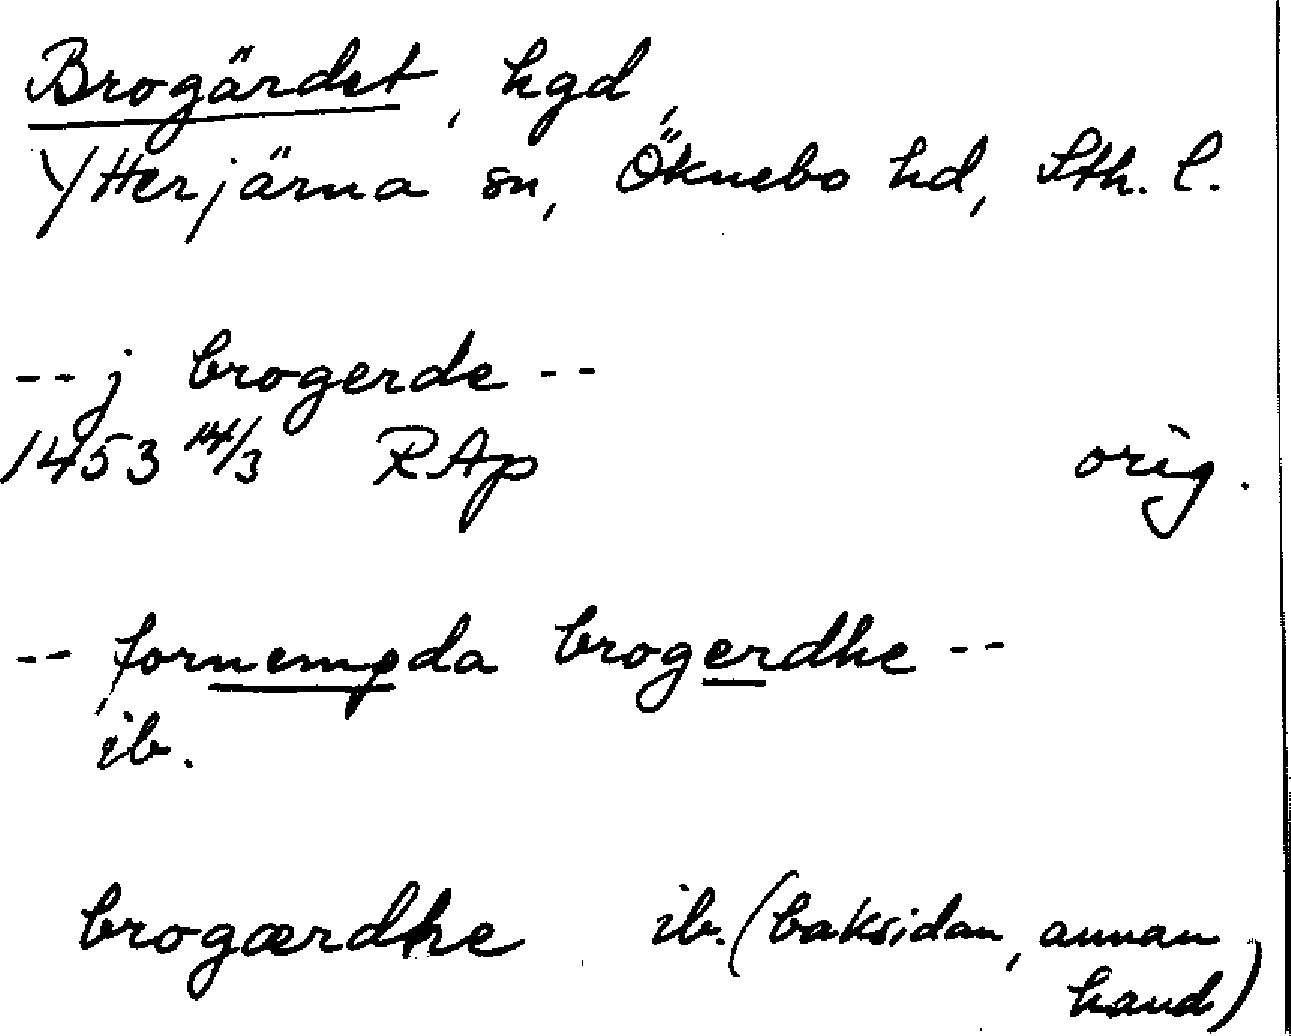 Brogärdet, hgd,
Ytterjärna sn, Öknebo hd, Sth. l.
-- j brogerde --
1453 14/3 RAp orig.
-- fornempda brogerdhe --
ib.
brogærdhe ib. (baksidan, annan
hand)